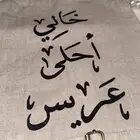 خالي
أحلى
عريس